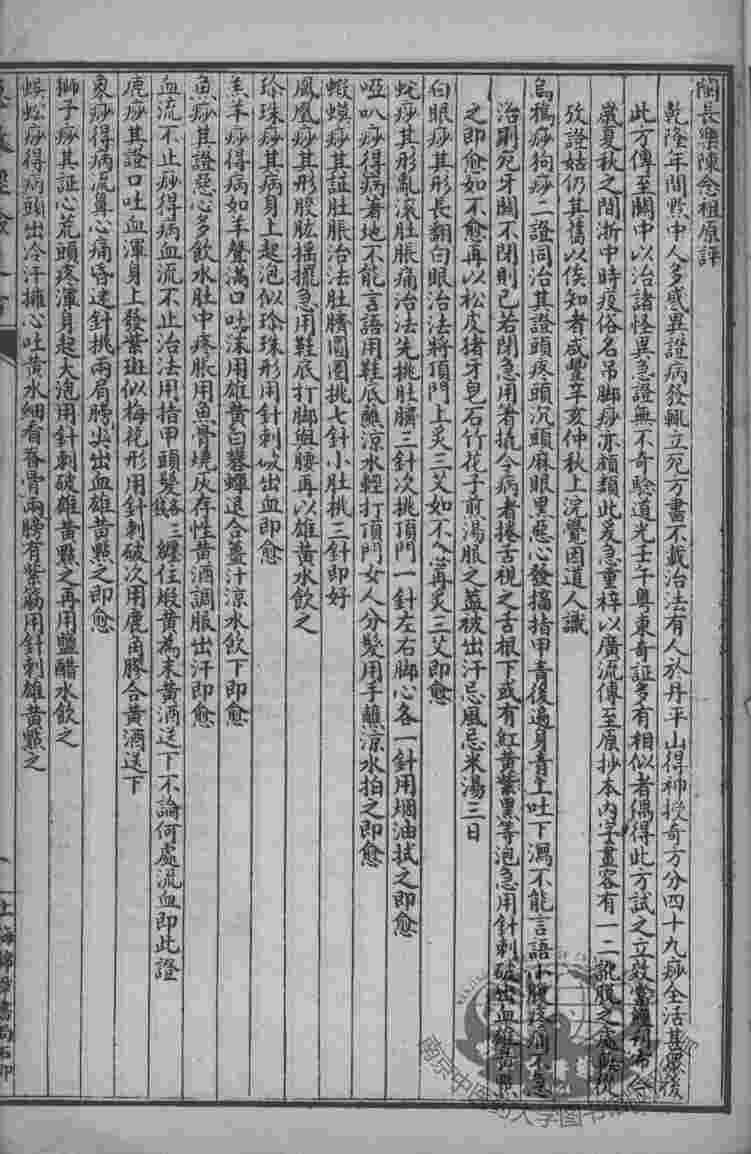 閩長樂陳念祖原評
乾隆年間黔中人多感異證病發輒立死方書不載治法有人於丹平山得神授奇方分四十九痧全活甚眾後
此方傳至關中以治諸怪異急證無不奇驗道光壬午粵東奇証多有相似者偶得此方試之立效當經刊布今
歲夏秋之間浙中時疫俗名吊脚痧亦頗類此爰急重梓以廣流傳至原抄本內字畫容有一二訛脫之處無從
攷證姑仍其舊以俟知者咸豐辛亥仲秋上浣覺因道人識
烏鴉痧狗痧二證同治其證頭疼頭沉頭麻眼黑惡心發搐指甲青後遍身青上吐下瀉不能言語小腹疼痛不急
治則死牙關不閉則已若閉急用箸撬令病者捲舌視之舌根下或有紅黄紫黑等泡急用針刺破出血雄黃點
之即愈如不愈再以松皮猪牙皂石竹花子煎湯服之蓋被出汗忌風忌米湯三日
白眼痧其形長翻白眼治法將頂門上炙三艾如不愈再炙三艾即愈
蛇痧其形亂滾肚脹痛治法先挑肚臍三針次挑頂門一針左右脚心各一針用烟油拭之即愈
啞叭痧得病著地不能言語用鞋底蘸涼水輕打頂門女人分髮用手蘸涼水拍之即愈
蝦蟆痧其証肚脹治法肚臍圓圈挑七針小肚挑三針即好
鳳凰痧其形股肱搖擺急用鞋底打脚與腰再以雄黃水飲之
珍珠痧其病身上起泡似珍珠形用針刺破出血即愈
羔羊痧得病如羊聲滿口吐沫用雄黃白礬蟬退合薑汁涼水飲下即愈
魚痧其證惡心多飲水肚中疼脹用魚骨燒灰存性黃酒調服出汗即愈
血流不止痧得病血流不止治法用指甲頭髮各三錢住煅黃為末黃酒送下不論何處流血即此證
鹿痧其證口吐血渾身上發紫斑似梅花形用針刺破次用鹿角膠合黃酒送下
象痧得病流鼻心痛昏迷針挑兩肩膀尖出血雄黃點之即愈
獅子痧其証心荒頭疼渾身起大泡用針刺破雄黃點之再用鹽醋水飲之
蜈蚣痧得病頭出冷汗擁心吐黃水細看脊骨兩膀有紫筋用針刺雄黃點之